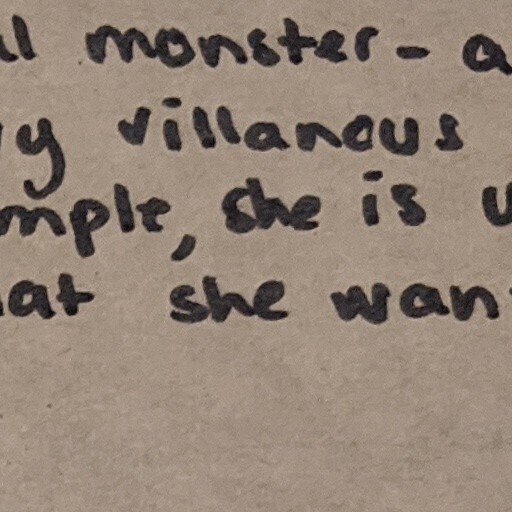 al monster - a
y villanous
mple, she is u
hat she want